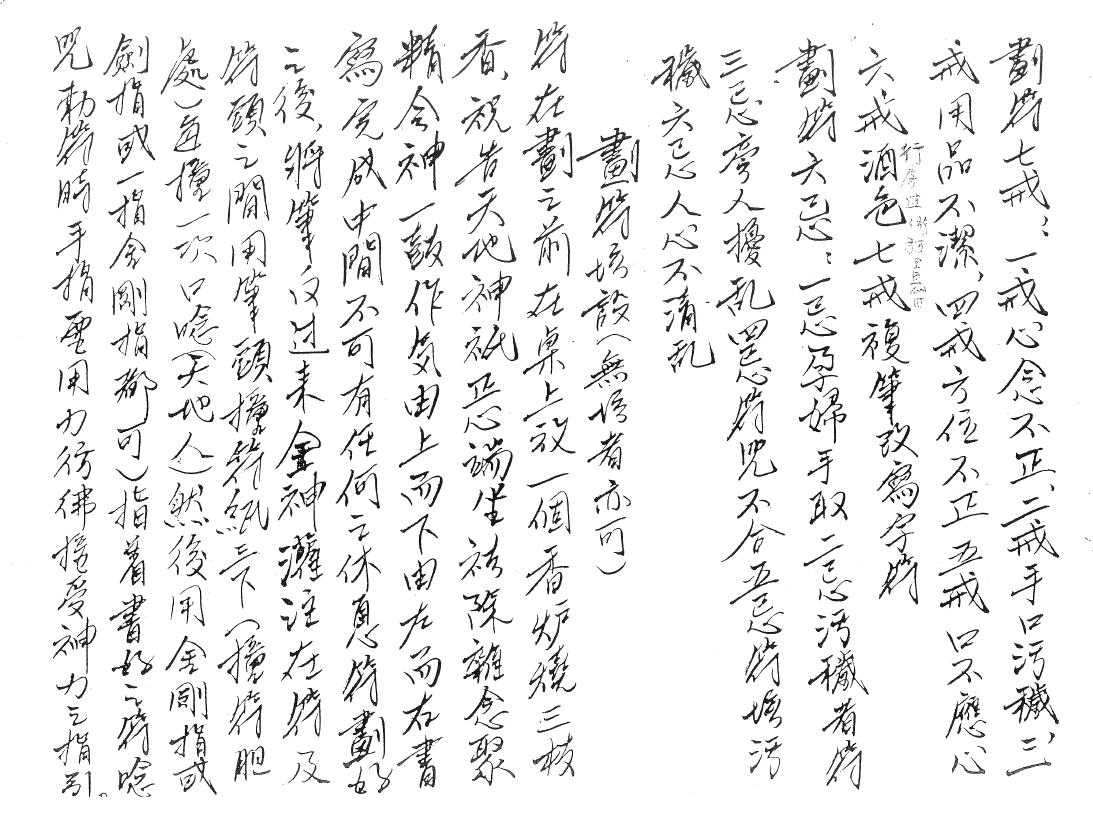 劃符七戒：一戒心念不正、二戒手口污穢、三
戒用品不潔，四戒方位不正五戒口不應心
六、戒酒色七戒複筆改寫字符
劃符六忌：一忌孕婦手取二忌污穢者符
三忌旁人擾乱四忌符咒不合五忌符坛污
穢六忌人心不清乱
畫符坛設（無坛者亦可）
符在劃之前在桌上放一個香炉燒三枝
香，祝告天地神祇正心端坐袪除雜念聚
精会神一鼓作気由上而下由左而右書
寫完成中間不可有任何之休息符劃好
之後，將筆反过来全神灌注在符及
符頭之間用筆頭撞符紙三下（撞符胆
處）每撞一次口唸（天地人）然後用金剛指或
劍指或一指金剛指都可）指着書好之符唸
咒勅符時手指要用力彷彿接受神力之指引。